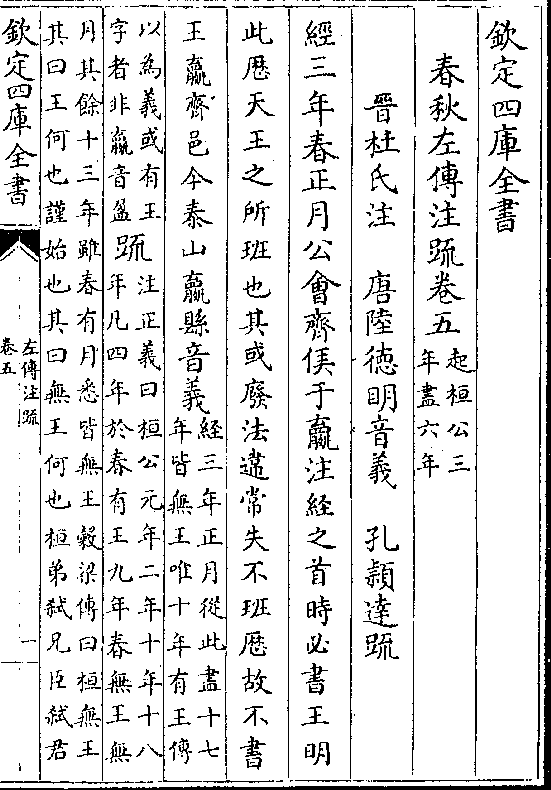 欽定四庫全書
春秋左傳注疏卷五
起桓公三
年盡六年
晉杜氏注　唐陸德明音義　孔穎達疏
經三年春正月公會齊侯于嬴注經之首時必書王明
此厯天王之所班也其或廢法違常失不班厯故不書
王嬴齊邑今泰山嬴縣音義
經三年正月從此盡十七
年皆無王唯十年有王傳
以為義或有王
字者非嬴音盈
疏
注正義曰桓公元年二年十年十八
年凡四年於春有王九年春無王無
月其餘十三年雖春有月悉皆無王穀梁傳曰桓無王
其曰王何也謹始也其曰無王何也桓弟弑兄臣弑君
欽定四庫全書
左傳注疏
卷五
一